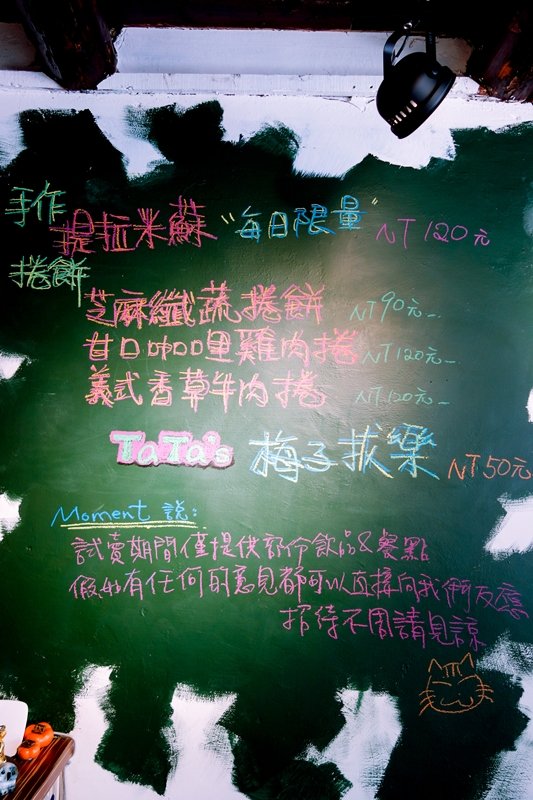 手作
提拉米蘇 "每日限量" NT 120元
捲餅
芝麻纖蔬捲餅 NT 90元
甘口咖哩雞肉捲 NT 120元
義式香草牛肉捲 NT 120元
TaTa's 梅子拔樂 NT 50元
Moment 說:
試賣期間僅提供部份飲品&餐點
假如有任何的意見都可以直接向我們反應
招待不周請見諒